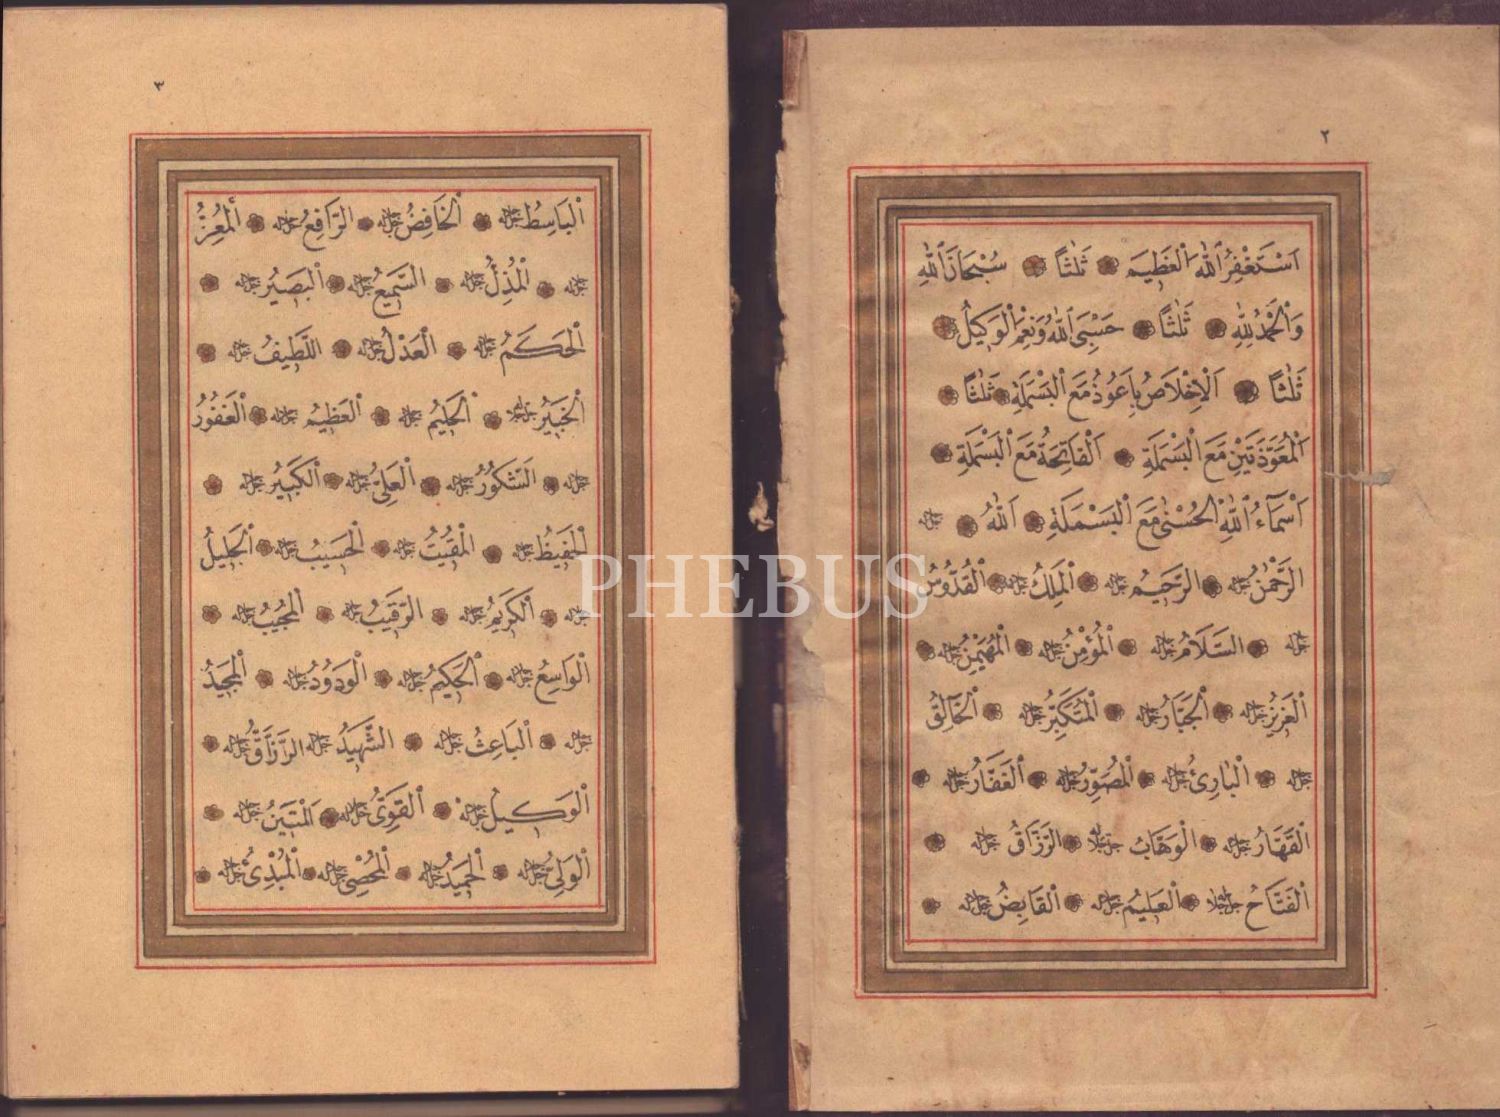 ٢
اَسْتَغْفِرُ ٱللهَ ٱلْعَظِيمَ ثَلٰثًا سُبْحَانَ ٱللهِ
وَٱلْحَمْدُ لِلهِ ثَلٰثًا حَسْبِيَ ٱللهُ وَنِعْمَ ٱلْوَكِيلُ
ثَلٰثًا اَلْاِخْلَاصُ بِاَعُوذُ مَعَ ٱلْبَسْمَلَةِ ثَلٰثًا
اَلْمُعَوَّذَتَيْنِ مَعَ ٱلْبَسْمَلَةِ اَلْفَاتِحَةُ مَعَ ٱلْبَسْمَلَةِ
اَسْمَآءُ ٱللهِ ٱلْحُسْنٰى مَعَ ٱلْبَسْمَلَةِ اَللهُ جل جلاله
اَلرَّحْمٰنُ جل جلاله اَلرَّحِيمُ جل جلاله اَلْمَلِكُ جل جلاله اَلْقُدُّوسُ
جل جلاله اَلسَّلَامُ جل جلاله اَلْمُؤْمِنُ جل جلاله اَلْمُهَيْمِنُ جل جلاله
اَلْعَزِيزُ جل جلاله اَلْجَبَّارُ جل جلاله اَلْمُتَكَبِّرُ جل جلاله اَلْخَالِقُ
جل جلاله اَلْبَارِئُ جل جلاله اَلْمُصَوِّرُ جل جلاله اَلْغَفَّارُ جل جلاله
اَلْقَهَّارُ جل جلاله اَلْوَهَّابُ جل جلاله اَلرَّزَّاقُ جل جلاله
اَلْفَتَّاحُ جل جلاله اَلْعَلِيمُ جل جلاله اَلْقَابِضُ جل جلاله
٣
اَلْبَاسِطُ جل جلاله اَلْخَافِضُ جل جلاله اَلرَّافِعُ جل جلاله اَلْمُعِزُّ
جل جلاله اَلْمُذِلُّ جل جلاله اَلسَّمِيعُ جل جلاله اَلْبَصِيرُ جل جلاله
اَلْحَكَمُ جل جلاله اَلْعَدْلُ جل جلاله اَللَّطِيفُ جل جلاله
اَلْخَبِيرُ جل جلاله اَلْحَلِيمُ جل جلاله اَلْعَظِيمُ جل جلاله اَلْغَفُورُ
جل جلاله اَلشَّكُورُ جل جلاله اَلْعَلِيُّ جل جلاله اَلْكَبِيرُ جل جلاله
اَلْحَفِيظُ جل جلاله اَلْمُقِيتُ جل جلاله اَلْحَسِيبُ جل جلاله اَلْجَلِيلُ
جل جلاله اَلْكَرِيمُ جل جلاله اَلرَّقِيبُ جل جلاله اَلْمُجِيبُ جل جلاله
اَلْوَاسِعُ جل جلاله اَلْحَكِيمُ جل جلاله اَلْوَدُودُ جل جلاله اَلْمَجِيدُ
جل جلاله اَلْبَاعِثُ جل جلاله اَلشَّهِيدُ جل جلاله اَلرَّزَّاقُ جل جلاله
اَلْوَكِيلُ جل جلاله اَلْقَوِيُّ جل جلاله اَلْمَتِينُ جل جلاله
اَلْوَلِيُّ جل جلاله اَلْحَمِيدُ جل جلاله اَلْمُحْصِي جل جلاله اَلْمُبْدِئُ جل جلاله
PHEBUS